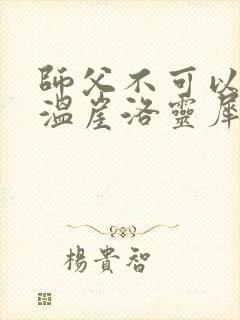 師父不可以
溫崖洛靈犀
楊貴智